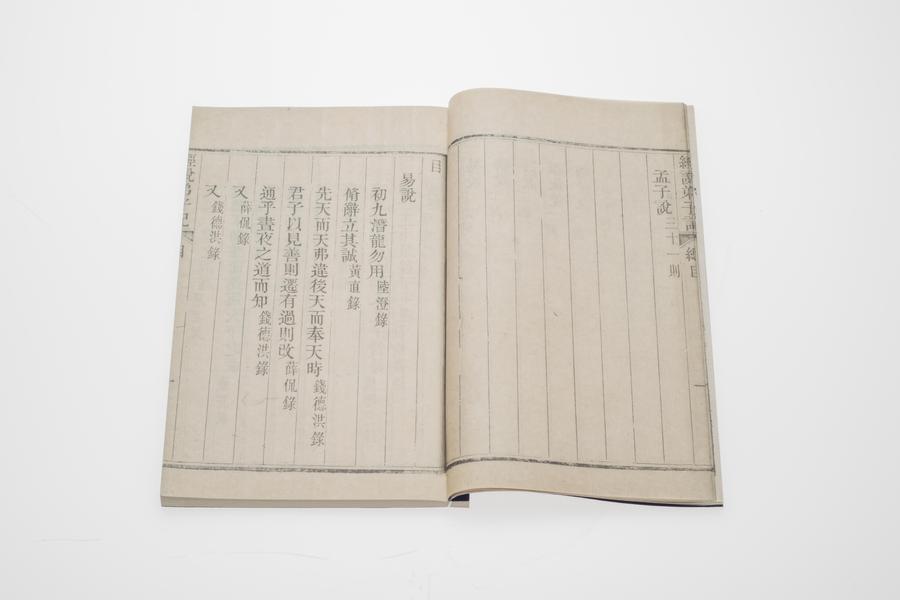 經說弟子記 總目
孟子說 三十一則
目
易說
初九潛龍勿用 陸澄錄
脩辭立其誠 黃直錄
先天而天弗違後天而奉天時 錢德洪錄
君子以見善則遷有過則改 薛侃錄
通乎晝夜之道而知 錢德洪錄
又 薛侃錄
又 錢德洪錄
經說弟子記 目